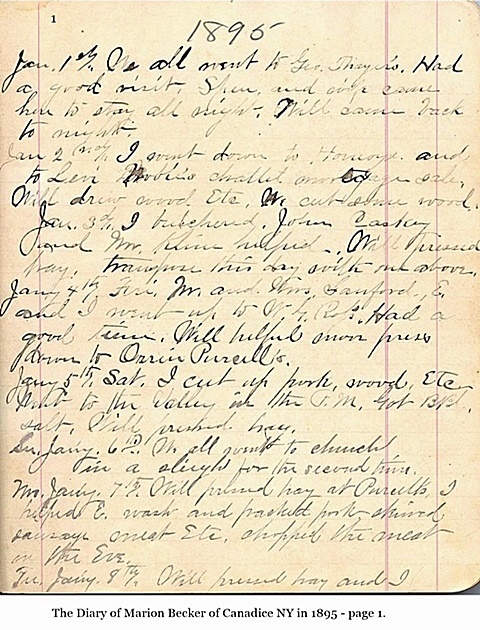 1
1895
Jan. 1st. We all went to Geo. Thayer's. Had
a good visit. Spen. and wife came
here to stay all night. Will came back
to night.
Jan 2nd, I went down to Honeoye. and
to Levi chattel mortgage sale.
Will drew wood Etc. We cut some wood.
Jan. 3d, I butchered. John
and Mr. helped. Will pressed
hay, transpose this day with one above.
Jany 4th Fri. Mr. and Mrs. Sanford, E.
and I went up to Had a
good time. Will helped move press
down to Orrin Purcell's.
Jany 5th. Sat. I cut up pork, wood, Etc
Went to the Valley in the P.M. Got Bbl.
salt. Will pressed hay.
Su. Jany. 6th. We all went to church
in a sleigh for the second time.
Mo. Jany. 7th. Will pressed hay at Purcells, I
helped E. wash and packed pork
sausage meat Etc. chopped the meat
in the Eve.
Tu. Jany. 8th. Will pressed hay and I
The Diary of Marion Becker of Canadice NY in 1895 - page 1.